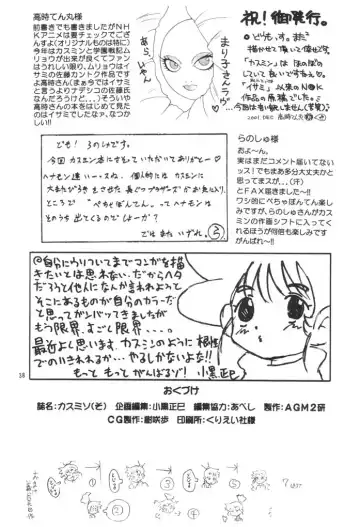 高時てん丸様
前書きでも書きましたがNH
Kアニメは要チェックでござい
ますよ(オリジナルものは特に)
今年はカスミンと学園戦記ム
リョウが出来が良くてファン
はうれしい限り、ムリョウはイ
サミの佐藤カントク作品です
よ高時さん(まぁ今ではイサミ
と言うよりナデシコの佐藤氏
なんだろうけど…)そういや
高時さんの本をはじめて見た
のはイサミでしたなァ、なつか
しい!!
あら、いやん
まり子さんラヴ
祝!御発行。
どうもっす。また
描かせて頂いて光栄です。
「カスミン」は
2001.DEC 高時てん丸
らのしゅ様
おょ〜ん。
実はまだコメント届いてない
ッス!でもまあ多分大丈夫かと
思ってまスが…。(汗)
とFAX届きました〜!!
ワシ的にぺちゃぽんてん楽し
みですが、らのしゅさんがカス
ミンの作画シフトに入ってく
れるほうが何倍も楽しみです
がんばれ〜!!
ども!らのしゅです。
今回カスミン本にさそっていただいてありがとー
ヘナモン達いーっスね。個人的にはカスミンに
ところで"ぺちゃぽんてん"ってヘナモンは
そのうち出てくるのではなーか?
ではまたいずれ。
@自分にウソついてまでマンガを描
きたいとは思わない。だからヘタ
だろうと他人になんか言われよって
そこにあるものが自分のカラーだ
と思ってガンバッてきましたが
もう限界。すごく限界・・・・。
最近よく思います。カスミンのように根性
でのりきれれるか・・・やるしかないよな!!
もっともっとがんばるゾ! 小黒正巳
38
おくづけ
誌名:カスミソ(そ) 企画編集:小黒正巳 編集協力:あべし 製作:AGM2研
CG製作:樹咲歩 印刷所:くりえい社様
① ② ③ ④ ⑤